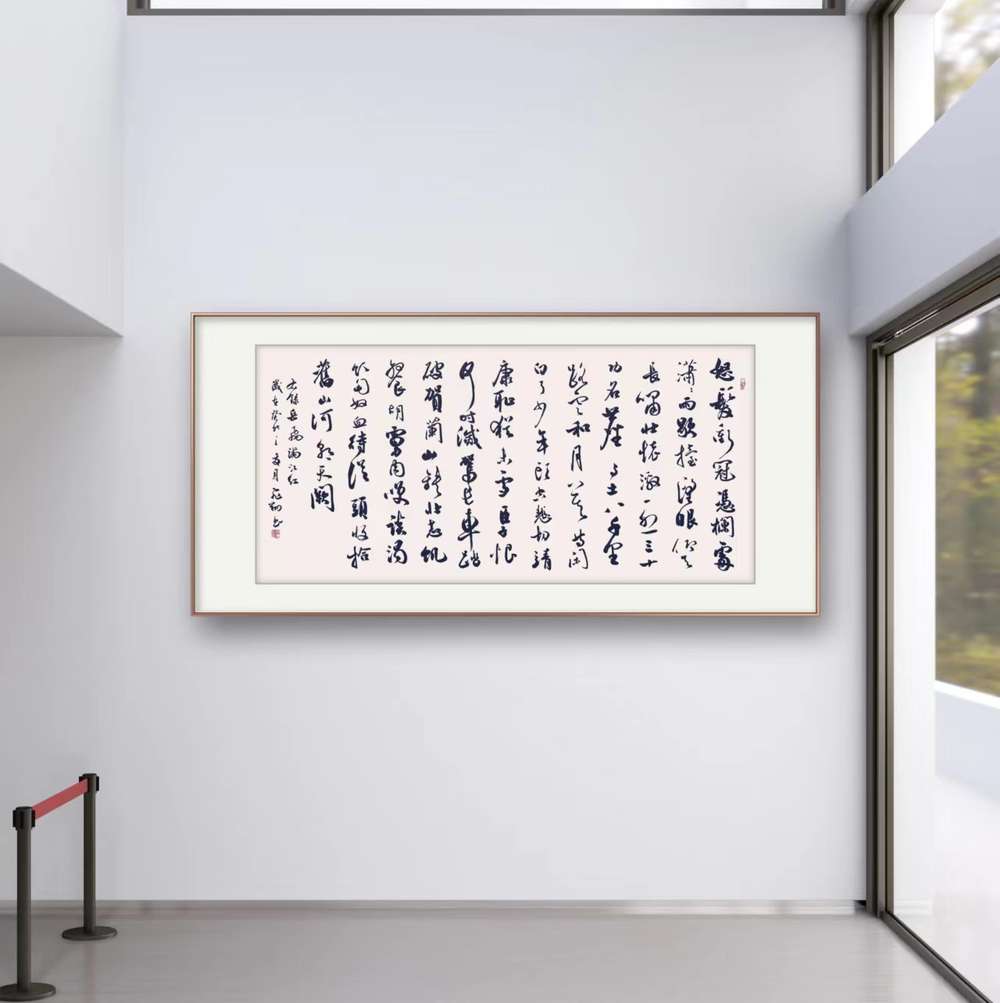 怒髮衝冠憑欄處
瀟瀟雨歇擡望眼仰天
長嘯壯懷激烈三十
功名塵與土八千里
路雲和月莫等閑
白了少年頭空悲切靖
康恥猶未雪臣子恨
何時滅駕長車踏
破賀蘭山缺壯志飢
餐胡虜肉笑談渴
飲匈奴血待從頭收拾
舊山河朝天闕
右錄岳飛滿江紅
歲在癸卯之月書